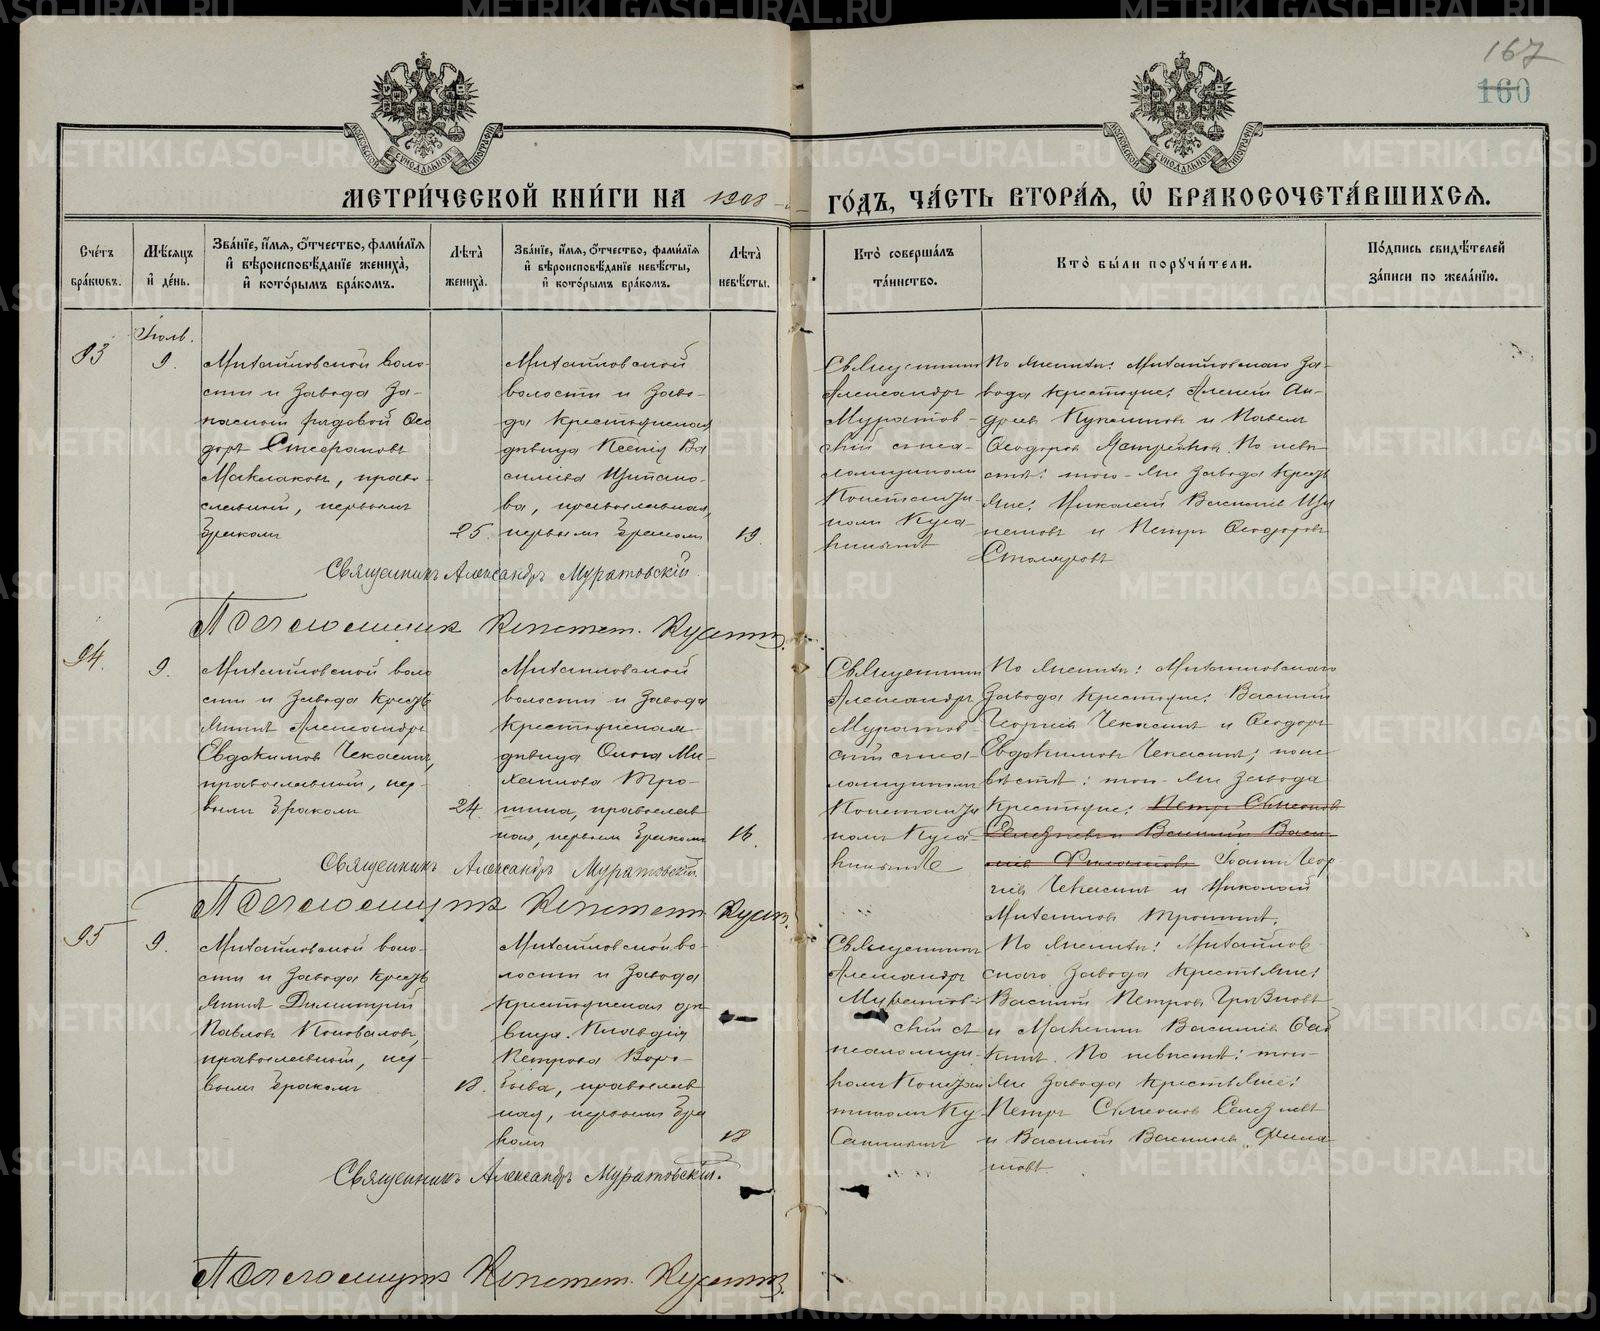 167
160
МЕТРИ́ЧЕСКОЙ КНИ́ГИ НА 1908 ГО́ДЪ, ЧА́СТЬ ВТОРА́Я, Ѡ БРАКОСОЧЕТА́ВШИХСЯ.
Сче́тъ бра́кωвъ.
Мѣ́сяцъ и҆ де́нь.
Зва́нїе, и҆́мя, ѻ҆́тчество, фами́лїя и҆ вѣроисповѣ́данїе жениха̀, и҆ кото́рымъ бра́комъ.
Лѣ́та жениха̀.
Зва́нїе, и҆́мя, ѻ҆́тчество, фами́лїя и҆ вѣроисповѣ́данїе невѣ́сты, и҆ кото́рымъ бра́комъ.
Лѣ́та невѣ́сты.
Кто̀ соверша́лъ та́инство.
Кто̀ бы́ли порꙋчи́тели.
По́дпись свидѣ́телей за́писи по жела́нїю.
93
Іюль.
9.
Михайловской воло-
сти и завода за-
пасной рядовой Ѳео
доръ Стефановъ
Маклаковъ, право-
славный, первымъ
бракомъ
25.
Михайловской
волости и заво-
да крестьянская
дѣвица Ксенія Ва
сильева Щипано-
ва, православная,
первымъ бракомъ
19.
Священникъ
Александръ
Муратов-
скій съ пса-
ломщикомъ
Константи-
номъ Куса-
кинымъ
По женихѣ: Михайловскаго за-
вода крестьяне: Алексѣй Ан-
дреевъ и Павелъ
Ѳеодоровъ Ястребковъ. По невѣ-
стѣ: того-же завода кресть
яне: Николай Васильевъ Щи
пановъ и Петръ Ѳеодоровъ
Столяровъ
Священникъ Александръ Муратовскій.
Псаломщикъ Констант. Кусакинъ.
94.
9.
Михайловской воло
сти и завода кресть
янинъ Александръ
Евдокимовъ Чекасинъ,
православный, пер-
вымъ бракомъ
24.
Михайловской
волости и завода
крестьянская
дѣвица Ольга Ми-
хаилова Тро-
шина, православ
ная, первымъ бракомъ
18.
Священникъ
Александръ
Муратов-
скій съ пса-
ломщикомъ
Константи
номъ Куса-
кинымъ
По женихѣ: Михайловскаго
завода крестьяне: Василій
Георгіевъ Чекасинъ и Ѳеодоръ
Евдокимовъ Чекасинъ; по не
вѣстѣ: того-же завода
крестьяне: Петръ Симеоновъ
Селезневъ и Василій Васи-
льевъ Филатовъ Іоаннъ Геор-
гіевъ Чекасинъ и Николай
Михаиловъ Трошинъ.
Священникъ Александръ Муратовскій
Псаломщикъ Констант. Кусакинъ.
95
9.
Михайловской воло-
сти и завода кресть
янинъ Димитрій
Павловъ Коноваловъ,
православный, пер-
вымъ бракомъ
18.
Михайловской во-
лости и завода
крестьянская дѣ-
вица Клавдія
Петрова Воро-
бьева, православ
ная, первымъ бра
комъ
18
Священникъ
Александръ
Муратов-
скій съ
псаломщи-
комъ Констан
тиномъ Ку-
сакинымъ
По женихѣ: Михайлов
скаго завода крестьяне:
Василій Петровъ
и Василіевъ
По невѣстѣ: того-
же завода крестьяне:
Петръ Симеоновъ Селезневъ
и Василій Васильевъ Фила
товъ.
Священникъ Александръ Муратовскій.
Псаломщикъ Констант. Кусакинъ.
METRIKI.GASO-URAL.RU